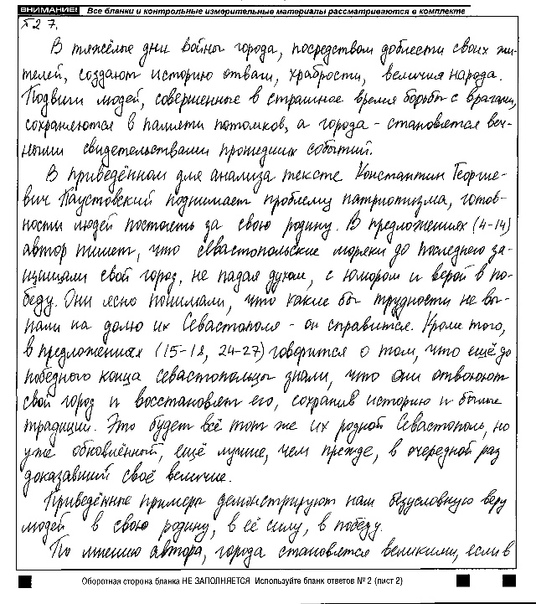 ВНИМАНИЕ! Все бланки и контрольные измерительные материалы рассматриваются в комплекте
№27.
В тяжёлые дни войны города, посредством доблести своих жи-
телей, создают историю отваги, храбрости, величия народа.
Подвиги людей, совершенные в страшное время борьбы с врагами,
сохраняются в памяти потомков, а города - становятся веч-
ными свидетельствами прошедших событий.
В приведённом для анализа тексте Константин Георгие-
вич Паустовский поднимает проблему патриотизма, готов-
ности людей постоять за свою родину. В предложениях (4-14)
автор пишет, что севастопольские моряки до последнего за-
щищали свой город, не падая духом, с юмором и верой в по-
беду. Они ясно понимали, что какие бы трудности не вы-
пали на долю их Севастополя - он справится. Кроме того,
в предложениях (15-18, 24-27) говорится о том, что ещё до
победного конца севастопольцы знали, что они отвоюют
свой город и восстановят его, сохранив историю и былые
традиции. Это будет всё тот же их родной Севастополь, но
уже обновлённый, ещё лучше, чем прежде, в очередной раз
доказавший своё величие.
Приведённые примеры демонстрируют нам безусловную веру
людей в свою родину, в её силу, в победу.
По мнению автора, города становятся великими, если в
Оборотная сторона бланка НЕ ЗАПОЛНЯЕТСЯ Используйте бланк ответов № 2 (лист 2)